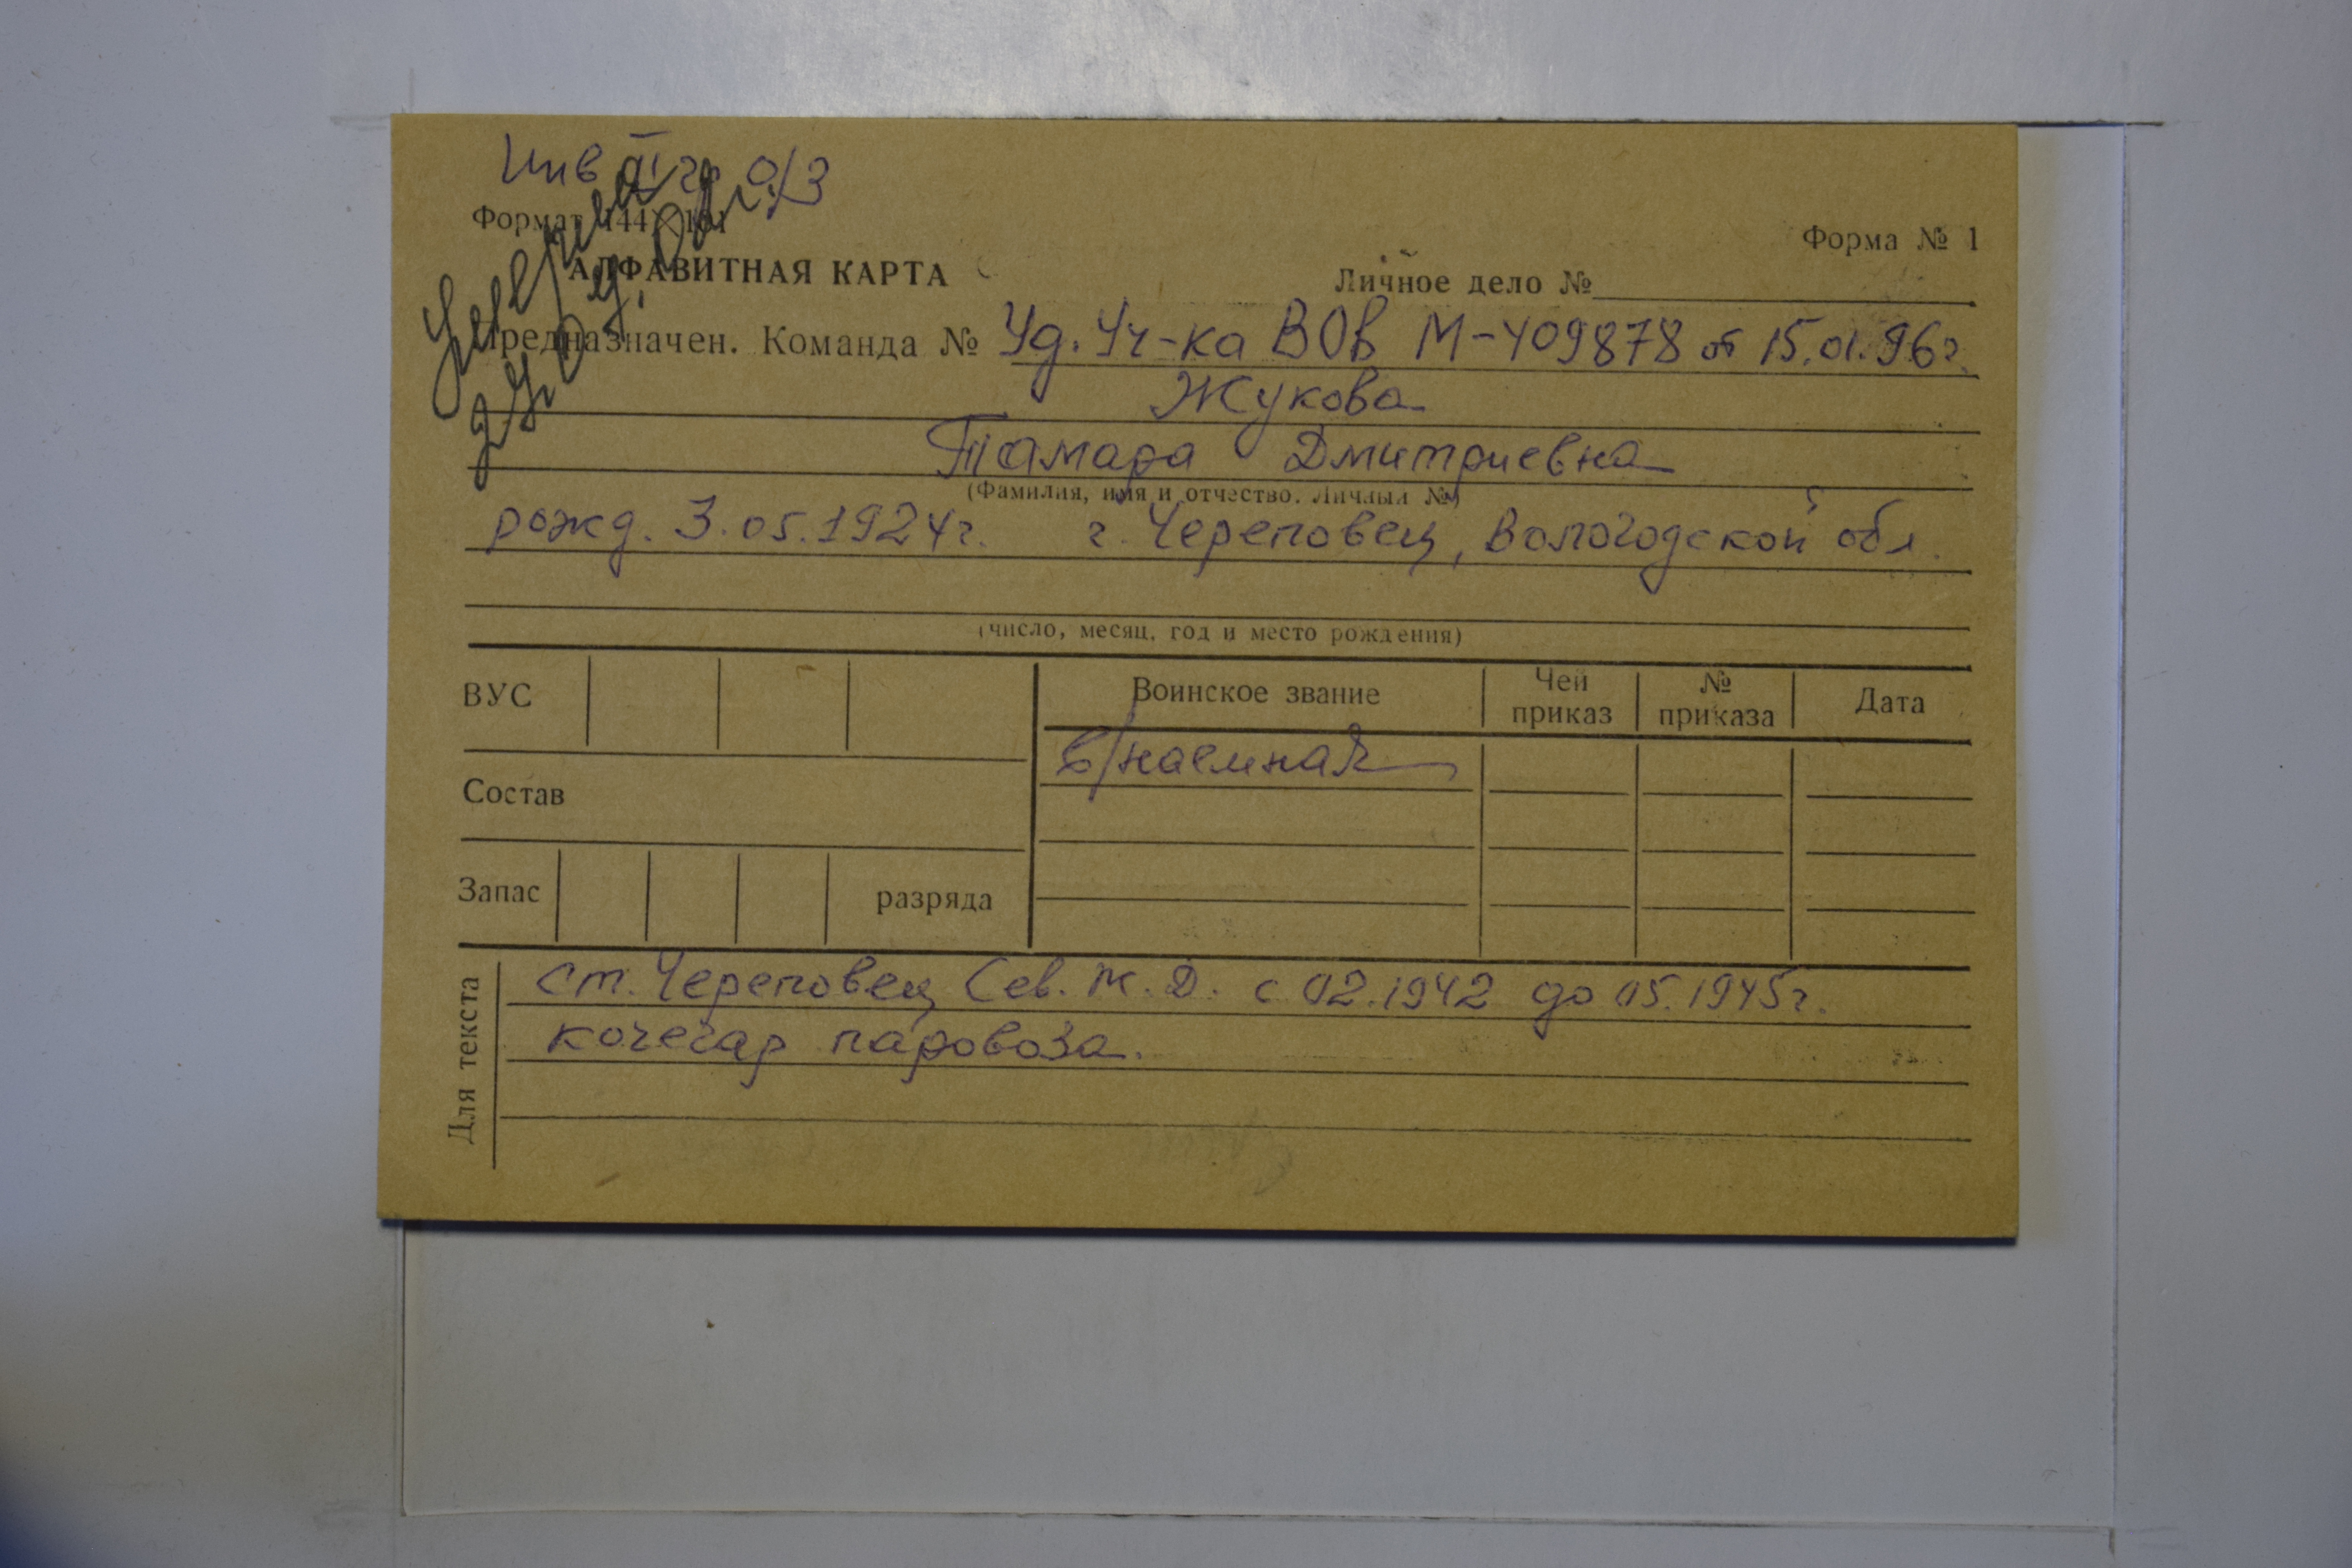 Инв II гр о/з
Формат 144×101
Форма № 1
АЛФАВИТНАЯ КАРТА
Личное дело №
Умерла
Предназначен. Команда № Уд. Уч-ка ВОв М-409878 от 15.01.96г.
Жукова
Тамара Дмитриевна
(Фамилия, имя и отчество. Личный №)
рожд. 3.05.1924г. г. Череповец, Вологодской обл.
(число, месяц, год и место рождения)
ВУС
Воинское звание
Чей приказ
№ приказа
Дата
в/наемная
Состав
Запас
разряда
Для текста
ст. Череповец Сев. ж. д. с 02.1942 до 05.1945г.
кочегар паровоза.